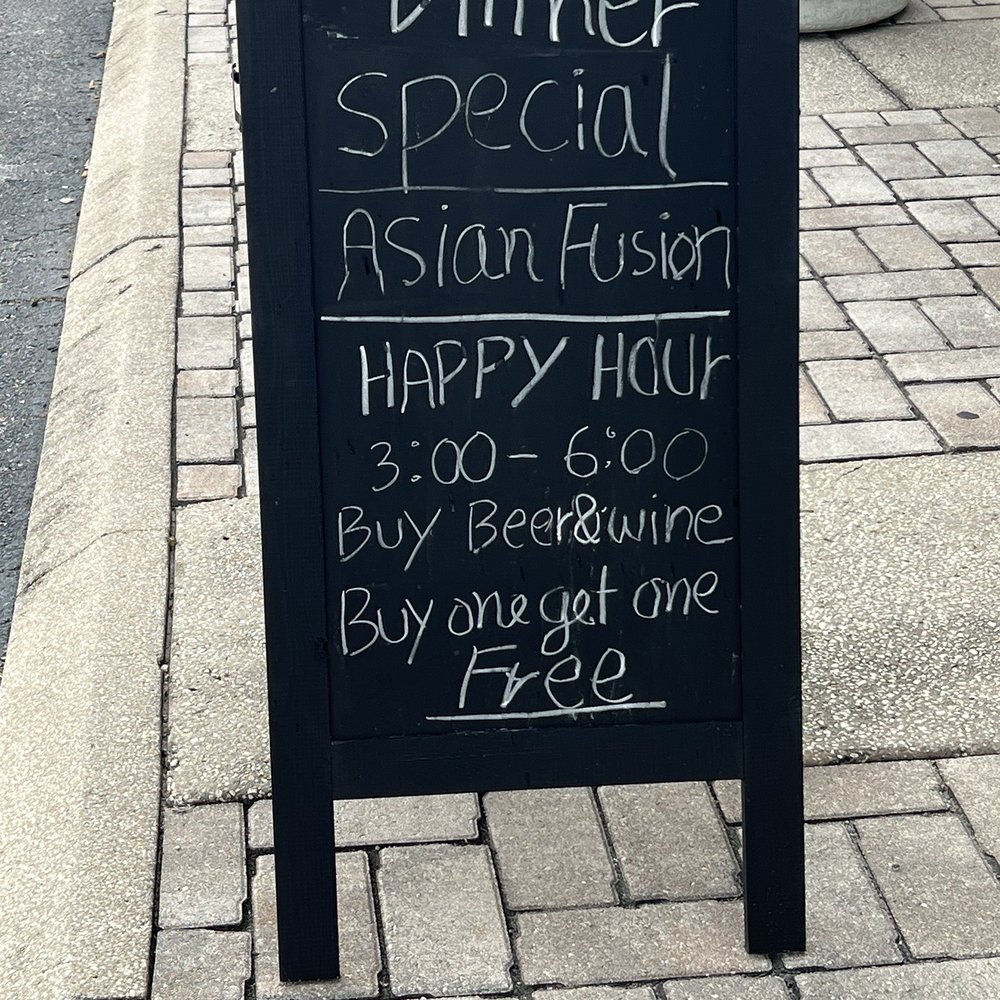 Dinner
Special
Asian Fusion
HAPPY HOUr
3:00 - 6:00
Buy Beer&wine
Buy one get one
Free